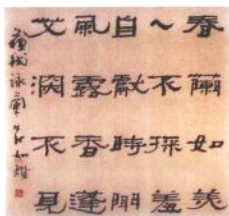 春蘭如美
人不採羞
自獻時聞
風露香蓬
艾深不見
蘇軾詠蘭